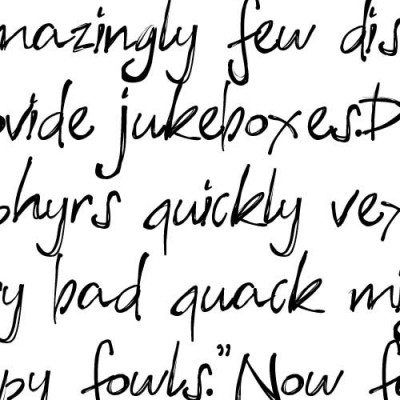 mazingly few dis
ovide jukeboxes.D
phyrs quickly vex
ry bad quack mi
ppy fowls.” Now f